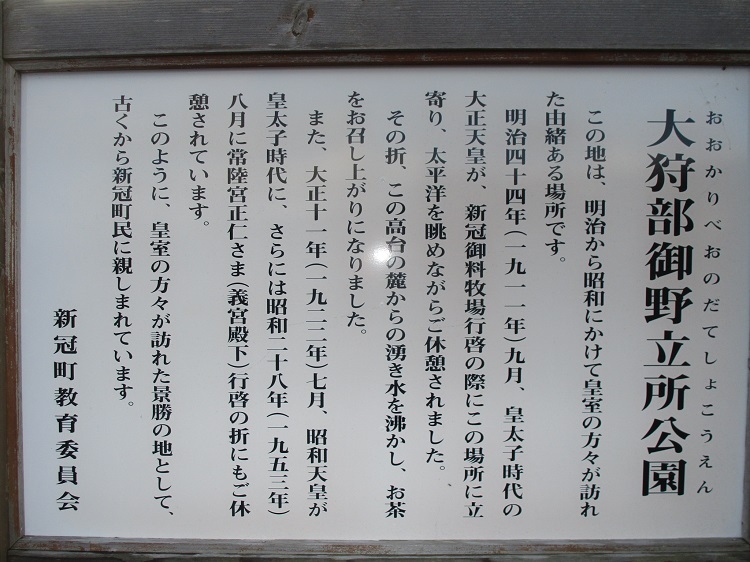 おおかりべおのだてしょこうえん
大狩部御野立所公園
この地は、明治から昭和にかけて皇室の方々が訪れ
た由緒ある場所です。
明治四十四年(一九一一年)九月、皇太子時代の
大正天皇が、新冠御料牧場行啓の際にこの場所に立
寄り、太平洋を眺めながらご休憩されました。
その折、この高台の麓からの湧き水を沸かし、お茶
をお召し上がりになりました。
また、大正十一年(一九二二年)七月、昭和天皇が
皇太子時代に、さらには昭和二十八年(一九五三年)
八月に常陸宮正仁さま(義宮殿下)行啓の折にもご休
憩されています。
このように、皇室の方々が訪れた景勝の地として、
古くから新冠町民に親しまれています。
新冠町教育委員会